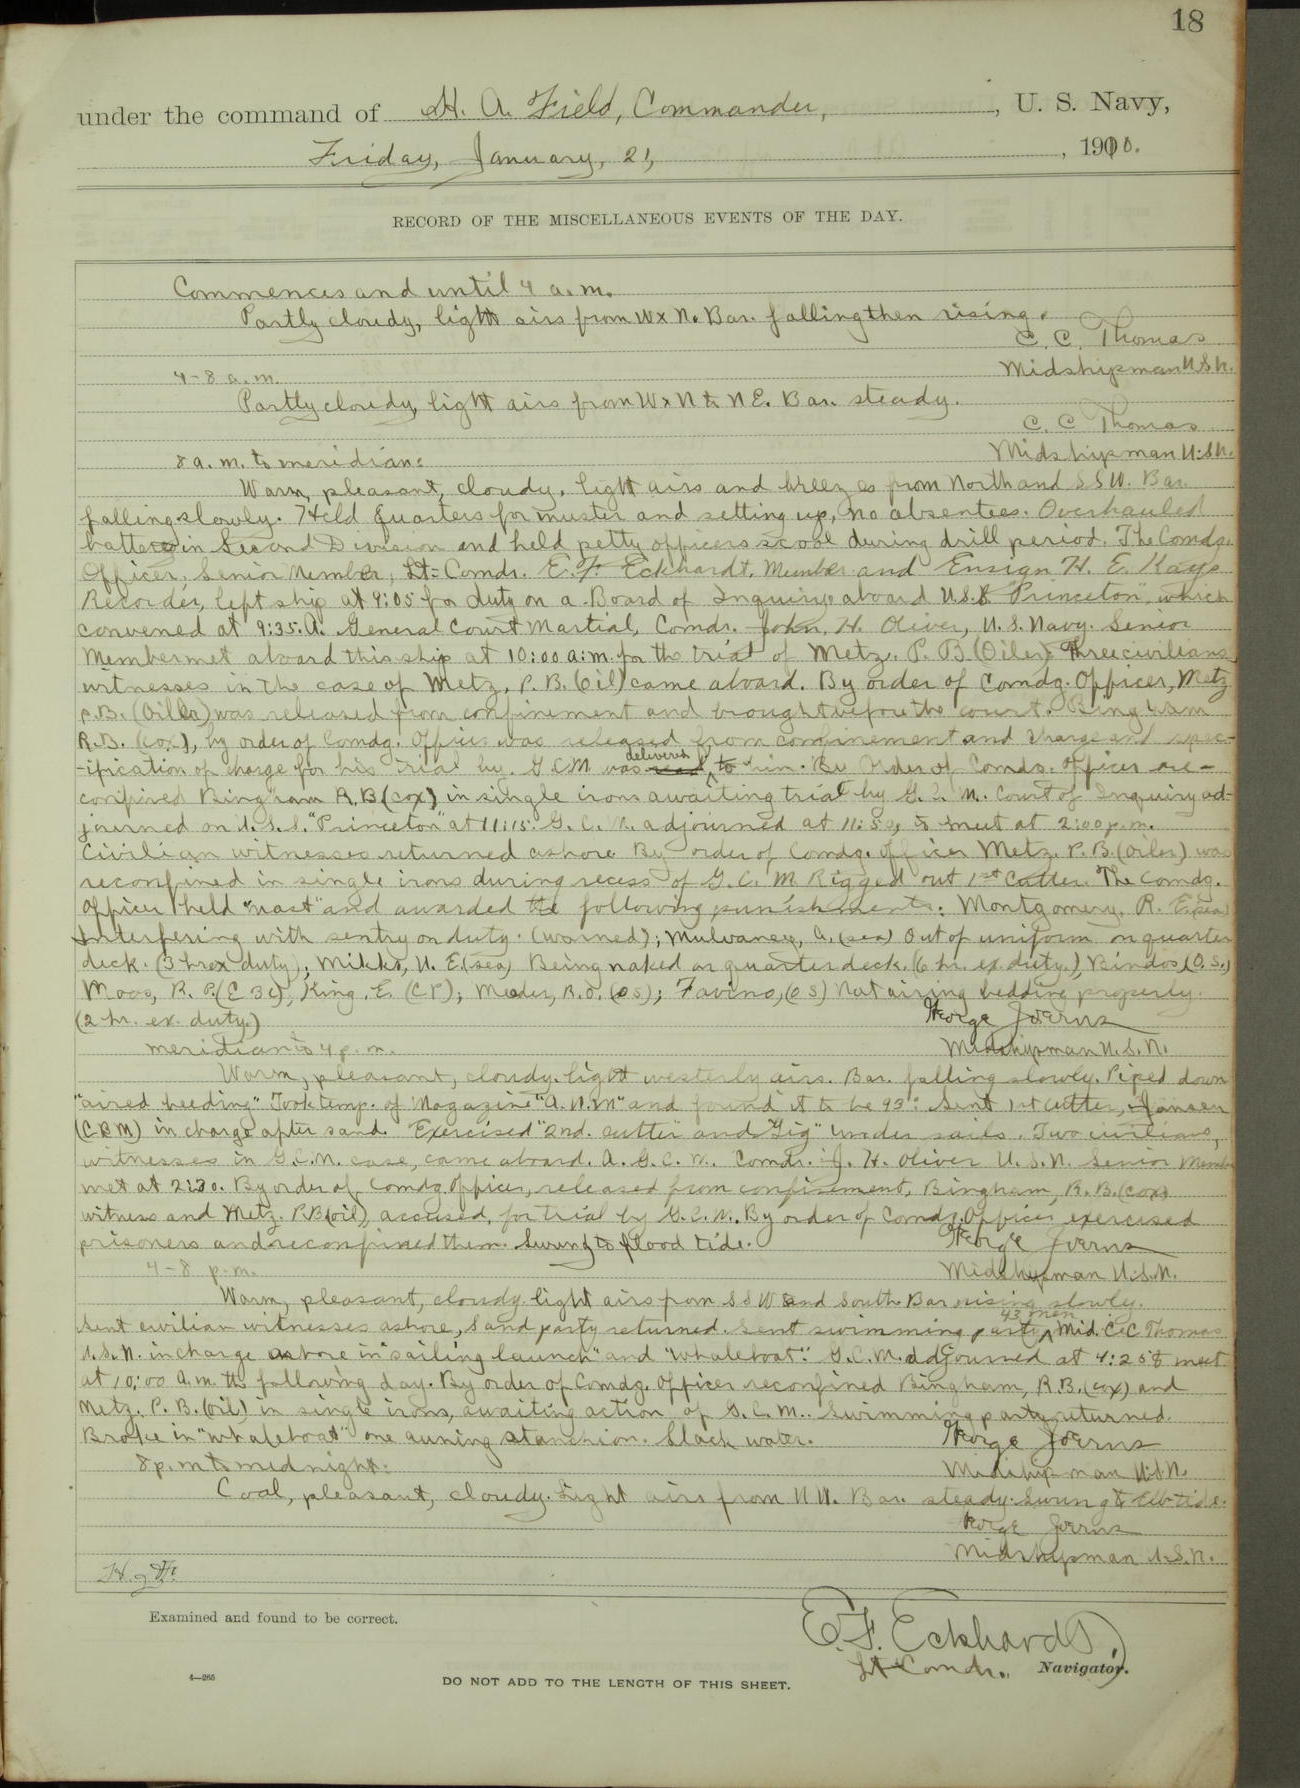 18
under the command of H. A. Field, Commander, , U. S. Navy,
Friday, January, 21, , 1910.
RECORD OF THE MISCELLANEOUS EVENTS OF THE DAY.
Commences and until 4 a.m.
Partly cloudy, light airs from W x N. Bar. falling then rising.
C. C. Thomas
Midshipman U.S.N.
4-8 a.m.
Partly cloudy, light airs from W x N to NE. Bar. steady.
C. C Thomas
Midshipman U.S.N.
8 a.m. to meridian:
Warm, pleasant, cloudy, light airs and breezes from North and SSW. Bar.
falling slowly. Held quarters for muster and setting up, no absentees. Overhauled
battery in Second Division and held petty officers scool during drill period. The Comdg.
Officer, Senior Member, Lt-Comdr. E. F. Eckhardt, Member and Ensign H. E. Kays
Recorder, left ship at 9:05 for duty on a Board of Inquiry aboard U.S.S. "Princeton", which
convened at 9:35. A. General Court Martial, Comdr. John. H. Oliver, U. S. Navy. Senior
Member met aboard this ship at 10:00 a.m. for the trial of Metz. P. B. (Oiler) Three civilians
witnesses in the case of Metz, P. B. (Oil) came aboard. By order of Comdg. Officer, Metz
P.B. (Oiler) was released from confinement and brought before the court. Bingham
R.B. (cox), by order of Comdg. Officer was released from confinement and charge and spec-
-ification of charge for his trial by G.C.M was delivered to him. By Order of Comdg. Officer re-
confined Bingham R.B (cox) in single irons awaiting trial by G. C. M. Court of Inquiry ad-
journed on U.S.S. "Princeton" at 11:15. G. C. M. adjourned at 11:50, to meet at 2:00 p.m.
Civilian witnesses returned ashore By order of Comdg. Officer Metz. P. B. (oiler) was
reconfined in single irons during recess of G. C. M Rigged out 1st Cutter. The Comdg.
Officer held "mast" and awarded the following punishments: Montgomery, R. E. (sea)
Interfering with sentry on duty. (warned); Mulvaney, A. (sea) Out of uniform on quarter
deck. (3 hr ex duty); Mikks, U. E. (sea) Being naked on quarter deck. (6 hr. ex. duty.), Bindos, (O.S.)
Moos, R. P. (C3C), King. E. (CP); Meder, R.O. (OS); Favino, (OS) Not airing bedding properly.
(2 hr. ex. duty.)
George Joerns
Midshipman U.S.N.
meridian to 4 p.m.
Warm, pleasant, cloudy. light westerly airs. Bar. falling slowly. Piped down
"aired beeding" Took temp. of Magazine "A.N.M" and found it to be 93°. Sent 1st Cutter, Jansen
(CBM) in charge after sand. Exercised "2nd. cutter" and "Gig" under sails. Two civilians,
witnesses in G.C.M. case, came aboard. A. G. C. M. Comdr. J. H. Oliver U.S.N. Senior Member
met at 2:30. By order of Comdg. Officer, released from confinement, Bingham, R. B. (cox)
witness and Metz. P.B (oil), accused, for trial by G.C.M. By order of Comdg. Officer exercised
prisoners and reconfined them. Swung to flood tide.
George Joerns
Midshipman U.S.N.
4-8 p.m.
Warm, pleasant, cloudy. light airs from SSW and South Bar rising slowly.
Sent civilian witnesses ashore, Sand party returned. Sent swimming party, 43 men Mid. C. C Thomas
U.S.N. in charge ashore in "sailing launch" and "whaleboat". G.C.M. adjourned at 4:25 to meet
at 10:00 a.m. the following day. By order of Comdg. Officer reconfined Bingham, R.B. (cox) and
Metz. P. B. (oil) in single irons, awaiting action of G.C.M.. Swimming party returned.
Broke in "whaleboat" one awning stanchion. Slack water.
George Joerns
Midshipman U.S.N.
8 p.m. to midnight:
Cool, pleasant, cloudy. Light airs from NW. Bar. steady. Swung to ebb tide.
George Joerns
Midshipman U.S.N.
Examined and found to be correct.
E. F. Eckhardt,
Lt-Comdr., Navigator.
4—265
DO NOT ADD TO THE LENGTH OF THIS SHEET.